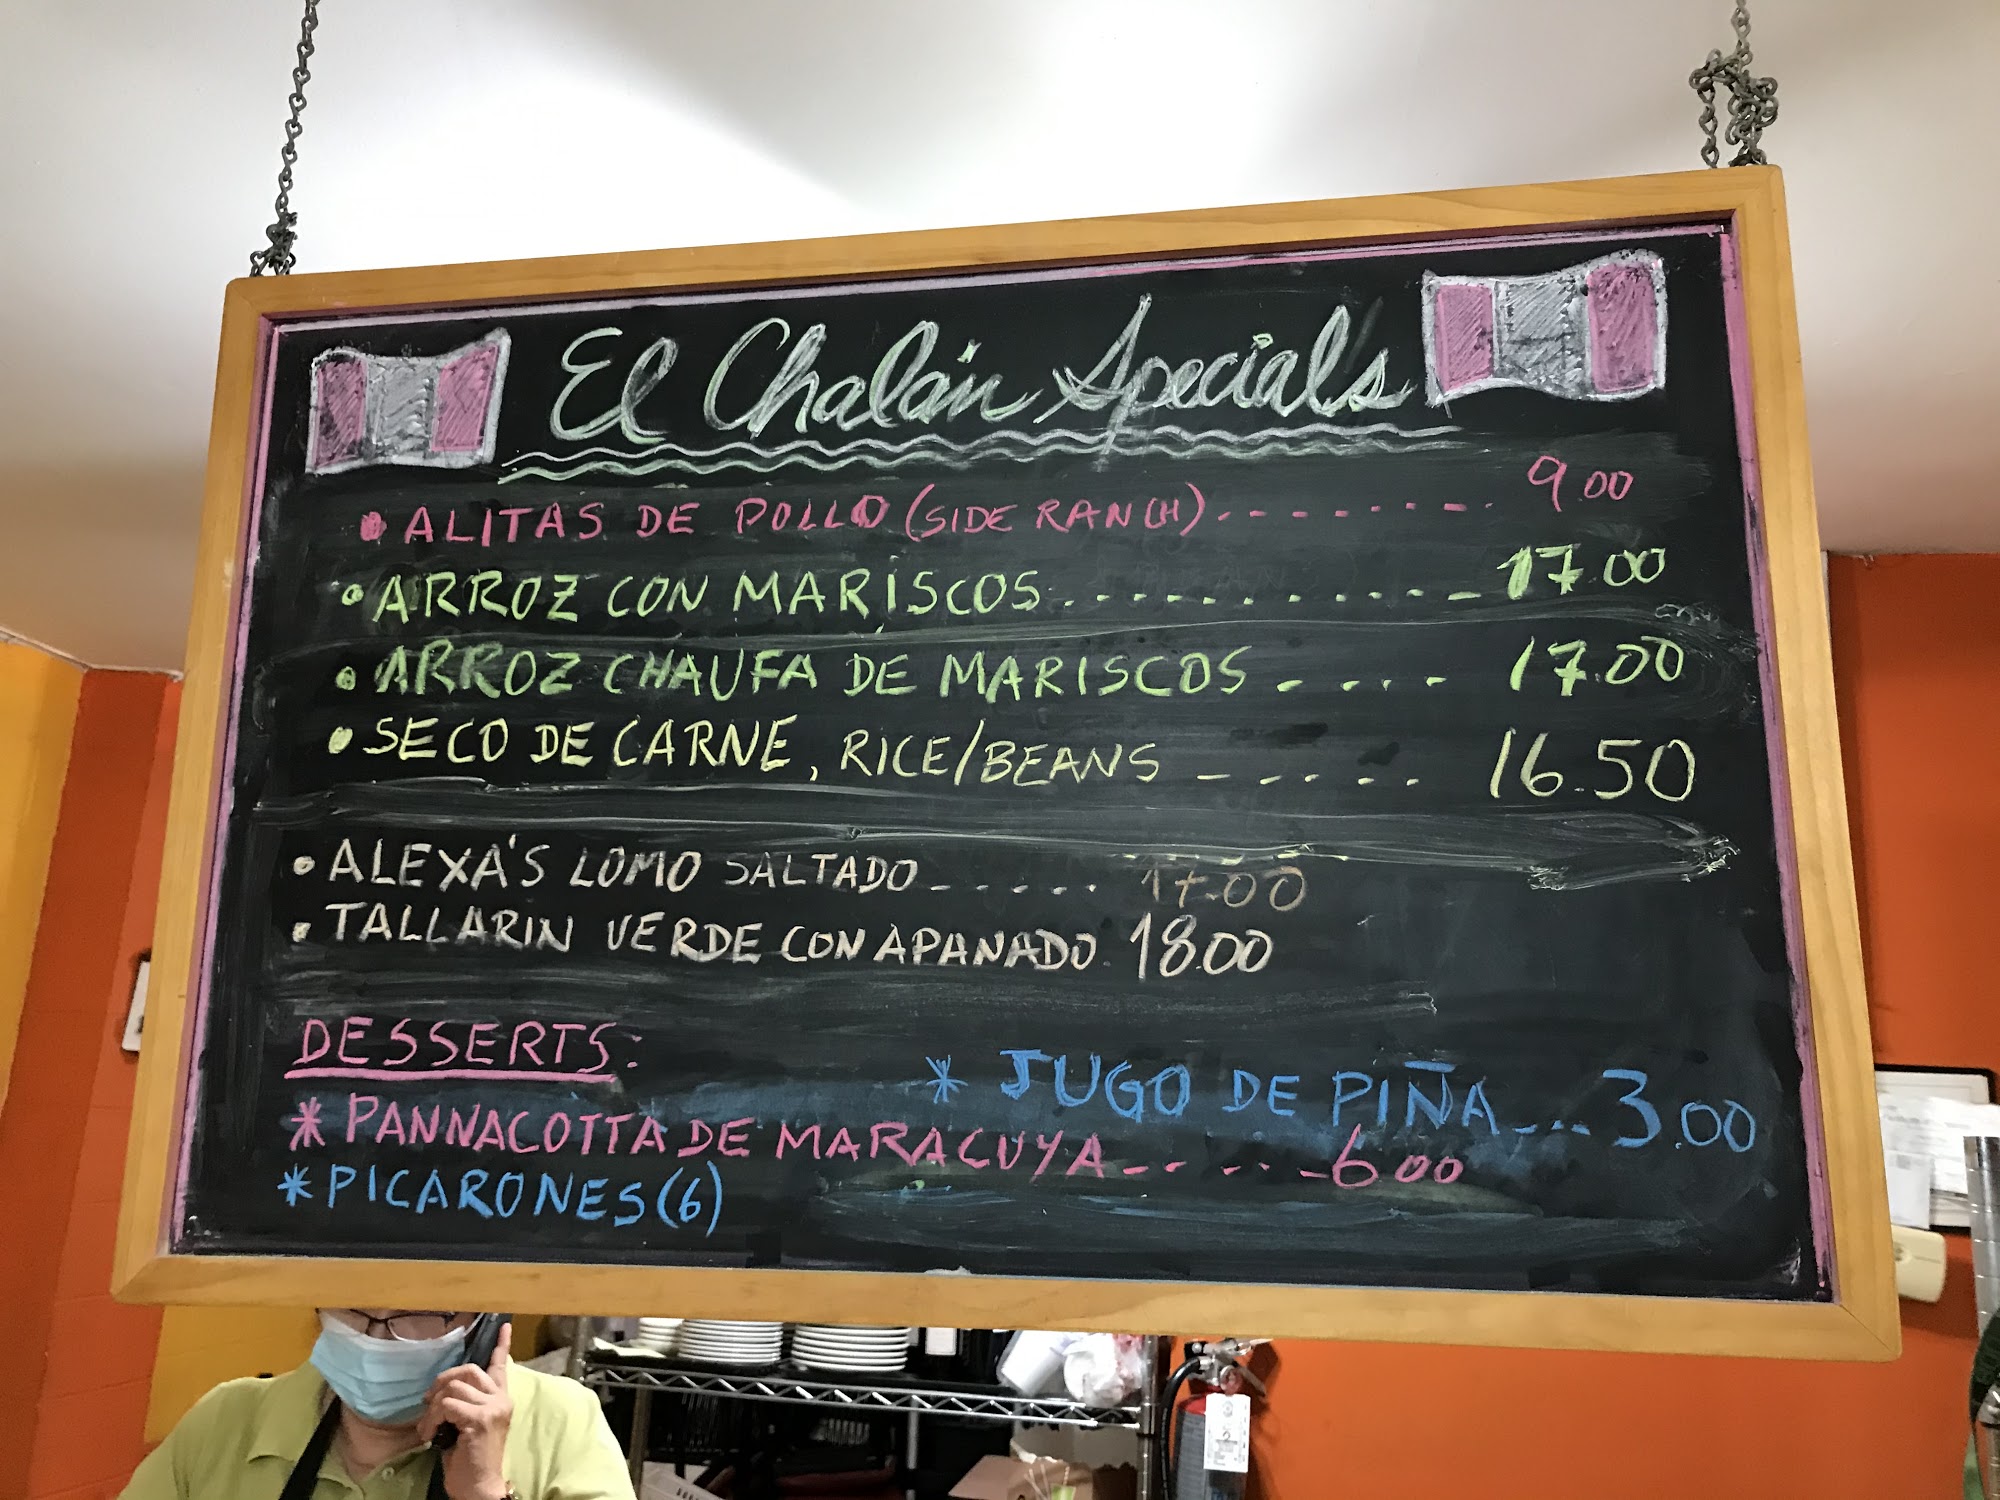 El Chalán Special's
• ALITAS DE POLLO (SIDE RANCH)........ 9.00
• ARROZ CON MARISCOS............ 17.00
• ARROZ CHAUFA DE MARISCOS ..... 17.00
• SECO DE CARNE, RICE/BEANS ...... 16.50
• ALEXA'S LOMO SALTADO ...... 17.00
• TALLARIN VERDE CON APANADO. 18.00
DESSERTS:
* JUGO DE PIÑA.... 3.00
* PANNACOTTA DE MARACUYA...... 6.00
* PICARONES (6)